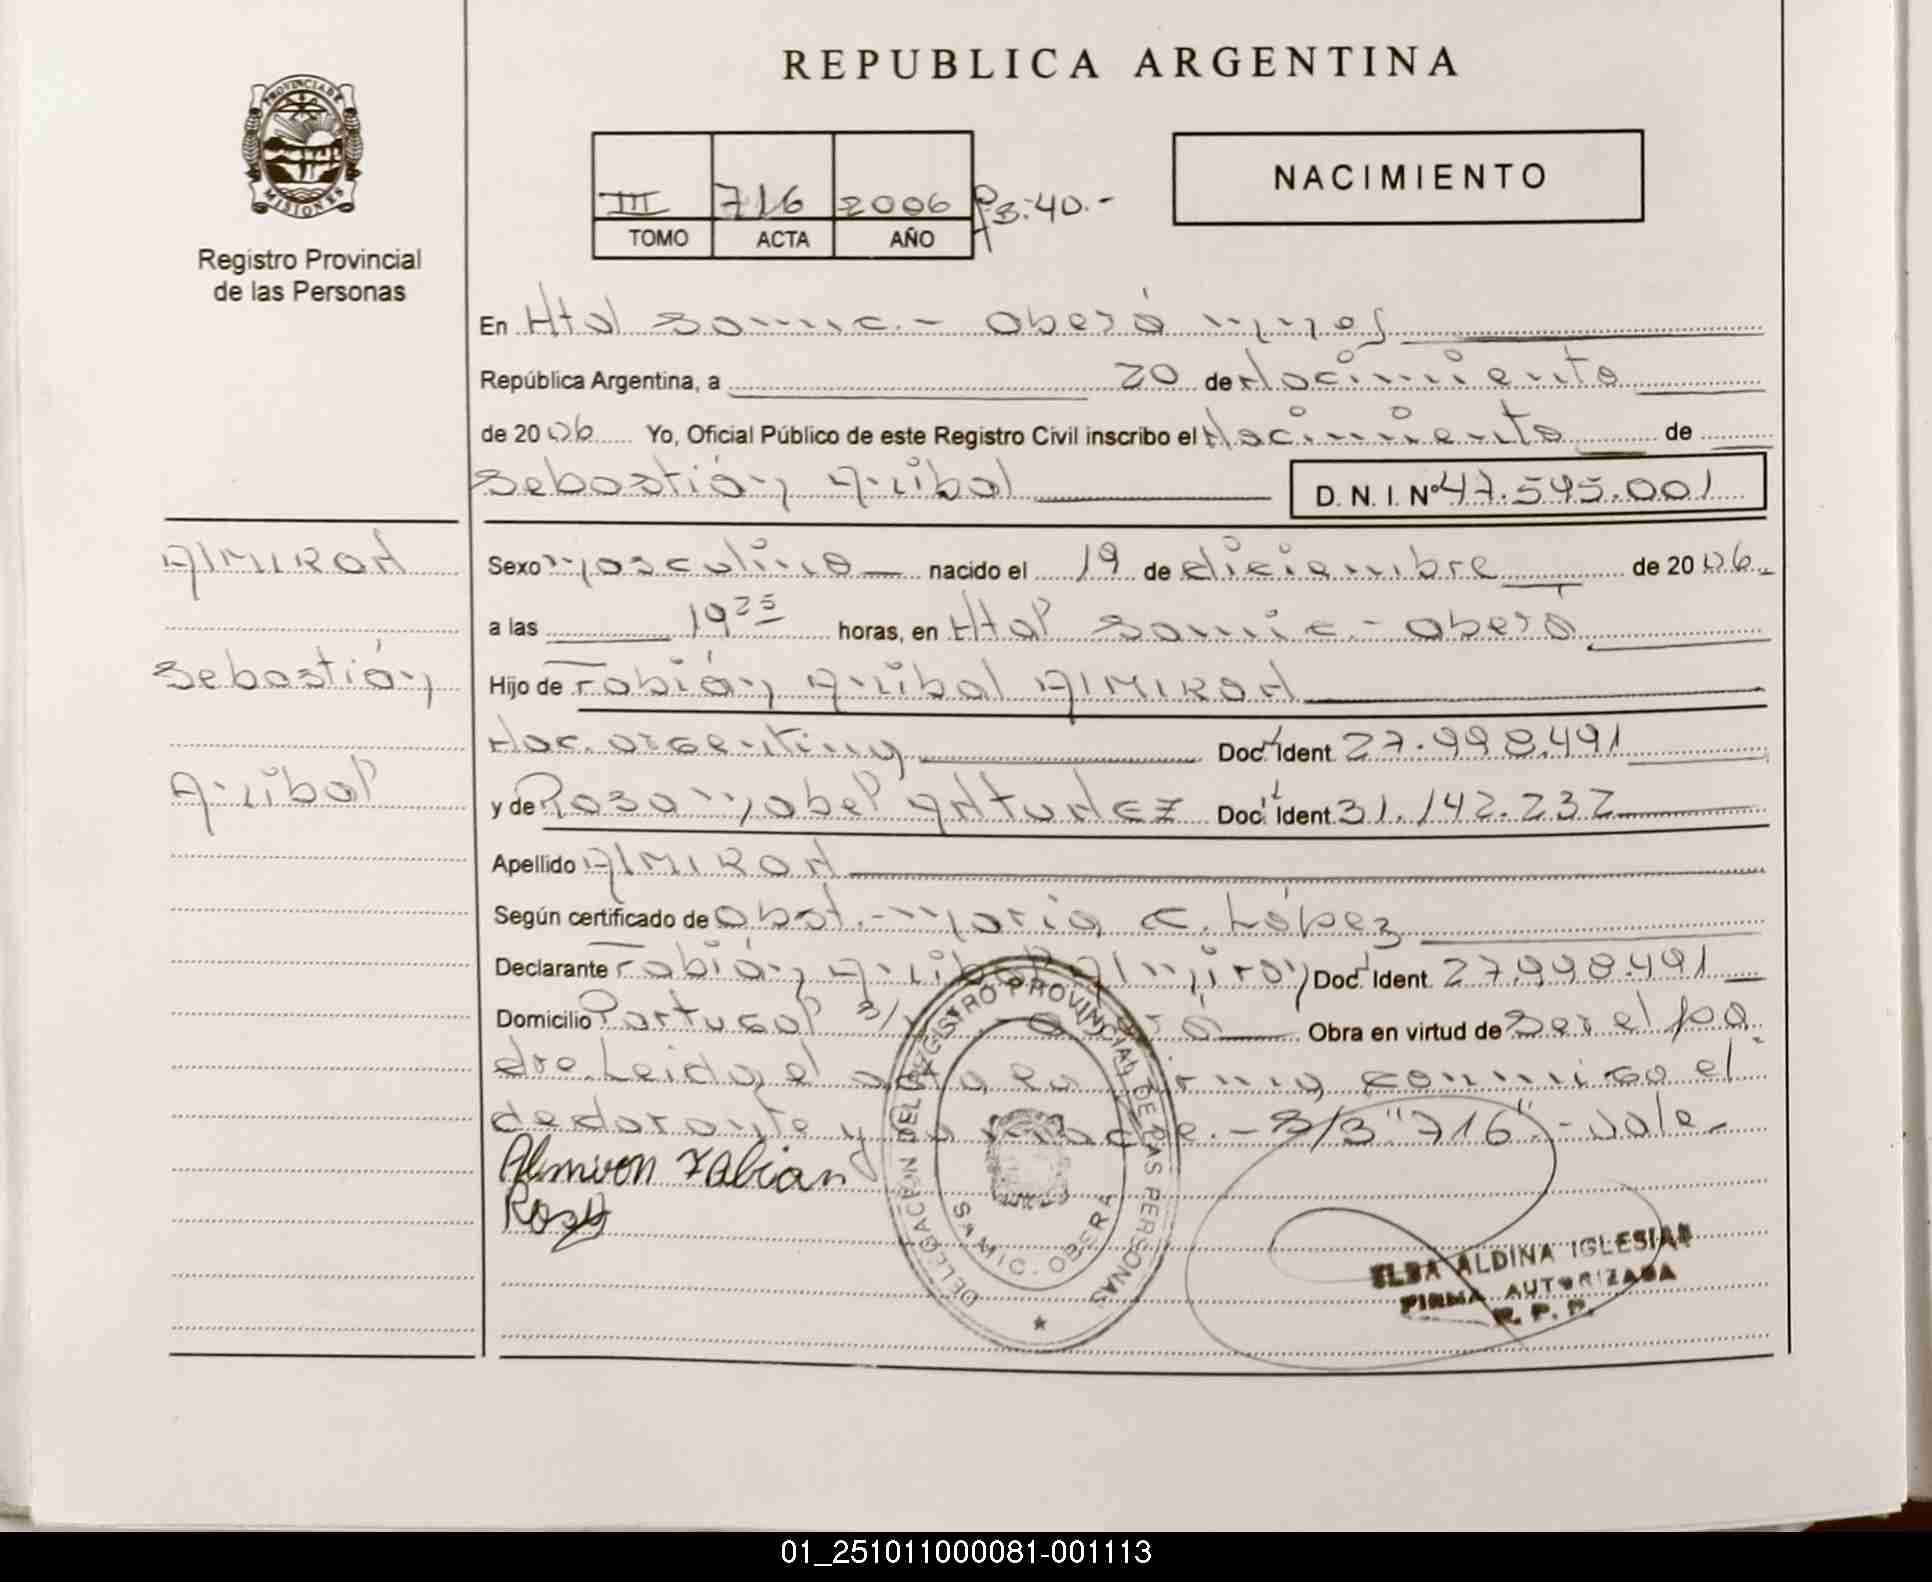 REPUBLICA ARGENTINA
PROVINCIA DE
MISIONES
Registro Provincial
de las Personas
III 716 2006 F3:40.-
TOMO ACTA AÑO
NACIMIENTO
En Htal Samic.- Oberá Mnes
República Argentina, a 20 de Nacimiento
de 2006 Yo, Oficial Público de este Registro Civil inscribo el Nacimiento de
Sebastián Aníbal D. N. I. Nº 47.595.001
ALMIRON
Sebastián
Aníbal
Sexo Masculino nacido el 19 de diciembre de 2006
a las 19 25 horas, en Htal Samic - Oberá
Hijo de Fabián Aníbal ALMIRON
Nac. argentino Doc. Ident. 27.998.491
y de Rosa Mabel ANTUNEZ Doc. Ident. 31.142.232
Apellido ALMIRON
Según certificado de Obst. - María C. López
Declarante Fabián Aníbal Almiron Doc. Ident. 27.998.491
Domicilio Portugal Obra en virtud de Ser el pa
dre. Leida el acta, la firma conmigo el
declarante y la madre. - S/3 "716" - Vale -
Almiron Fabian
Rosa
DELEGACION DEL REGISTRO PROVINCIAL DE LAS PERSONAS
SAMIC. OBERA
ELBA ALDINA IGLESIAS
FIRMA AUTORIZADA
R. P. P.
01_251011000081-001113